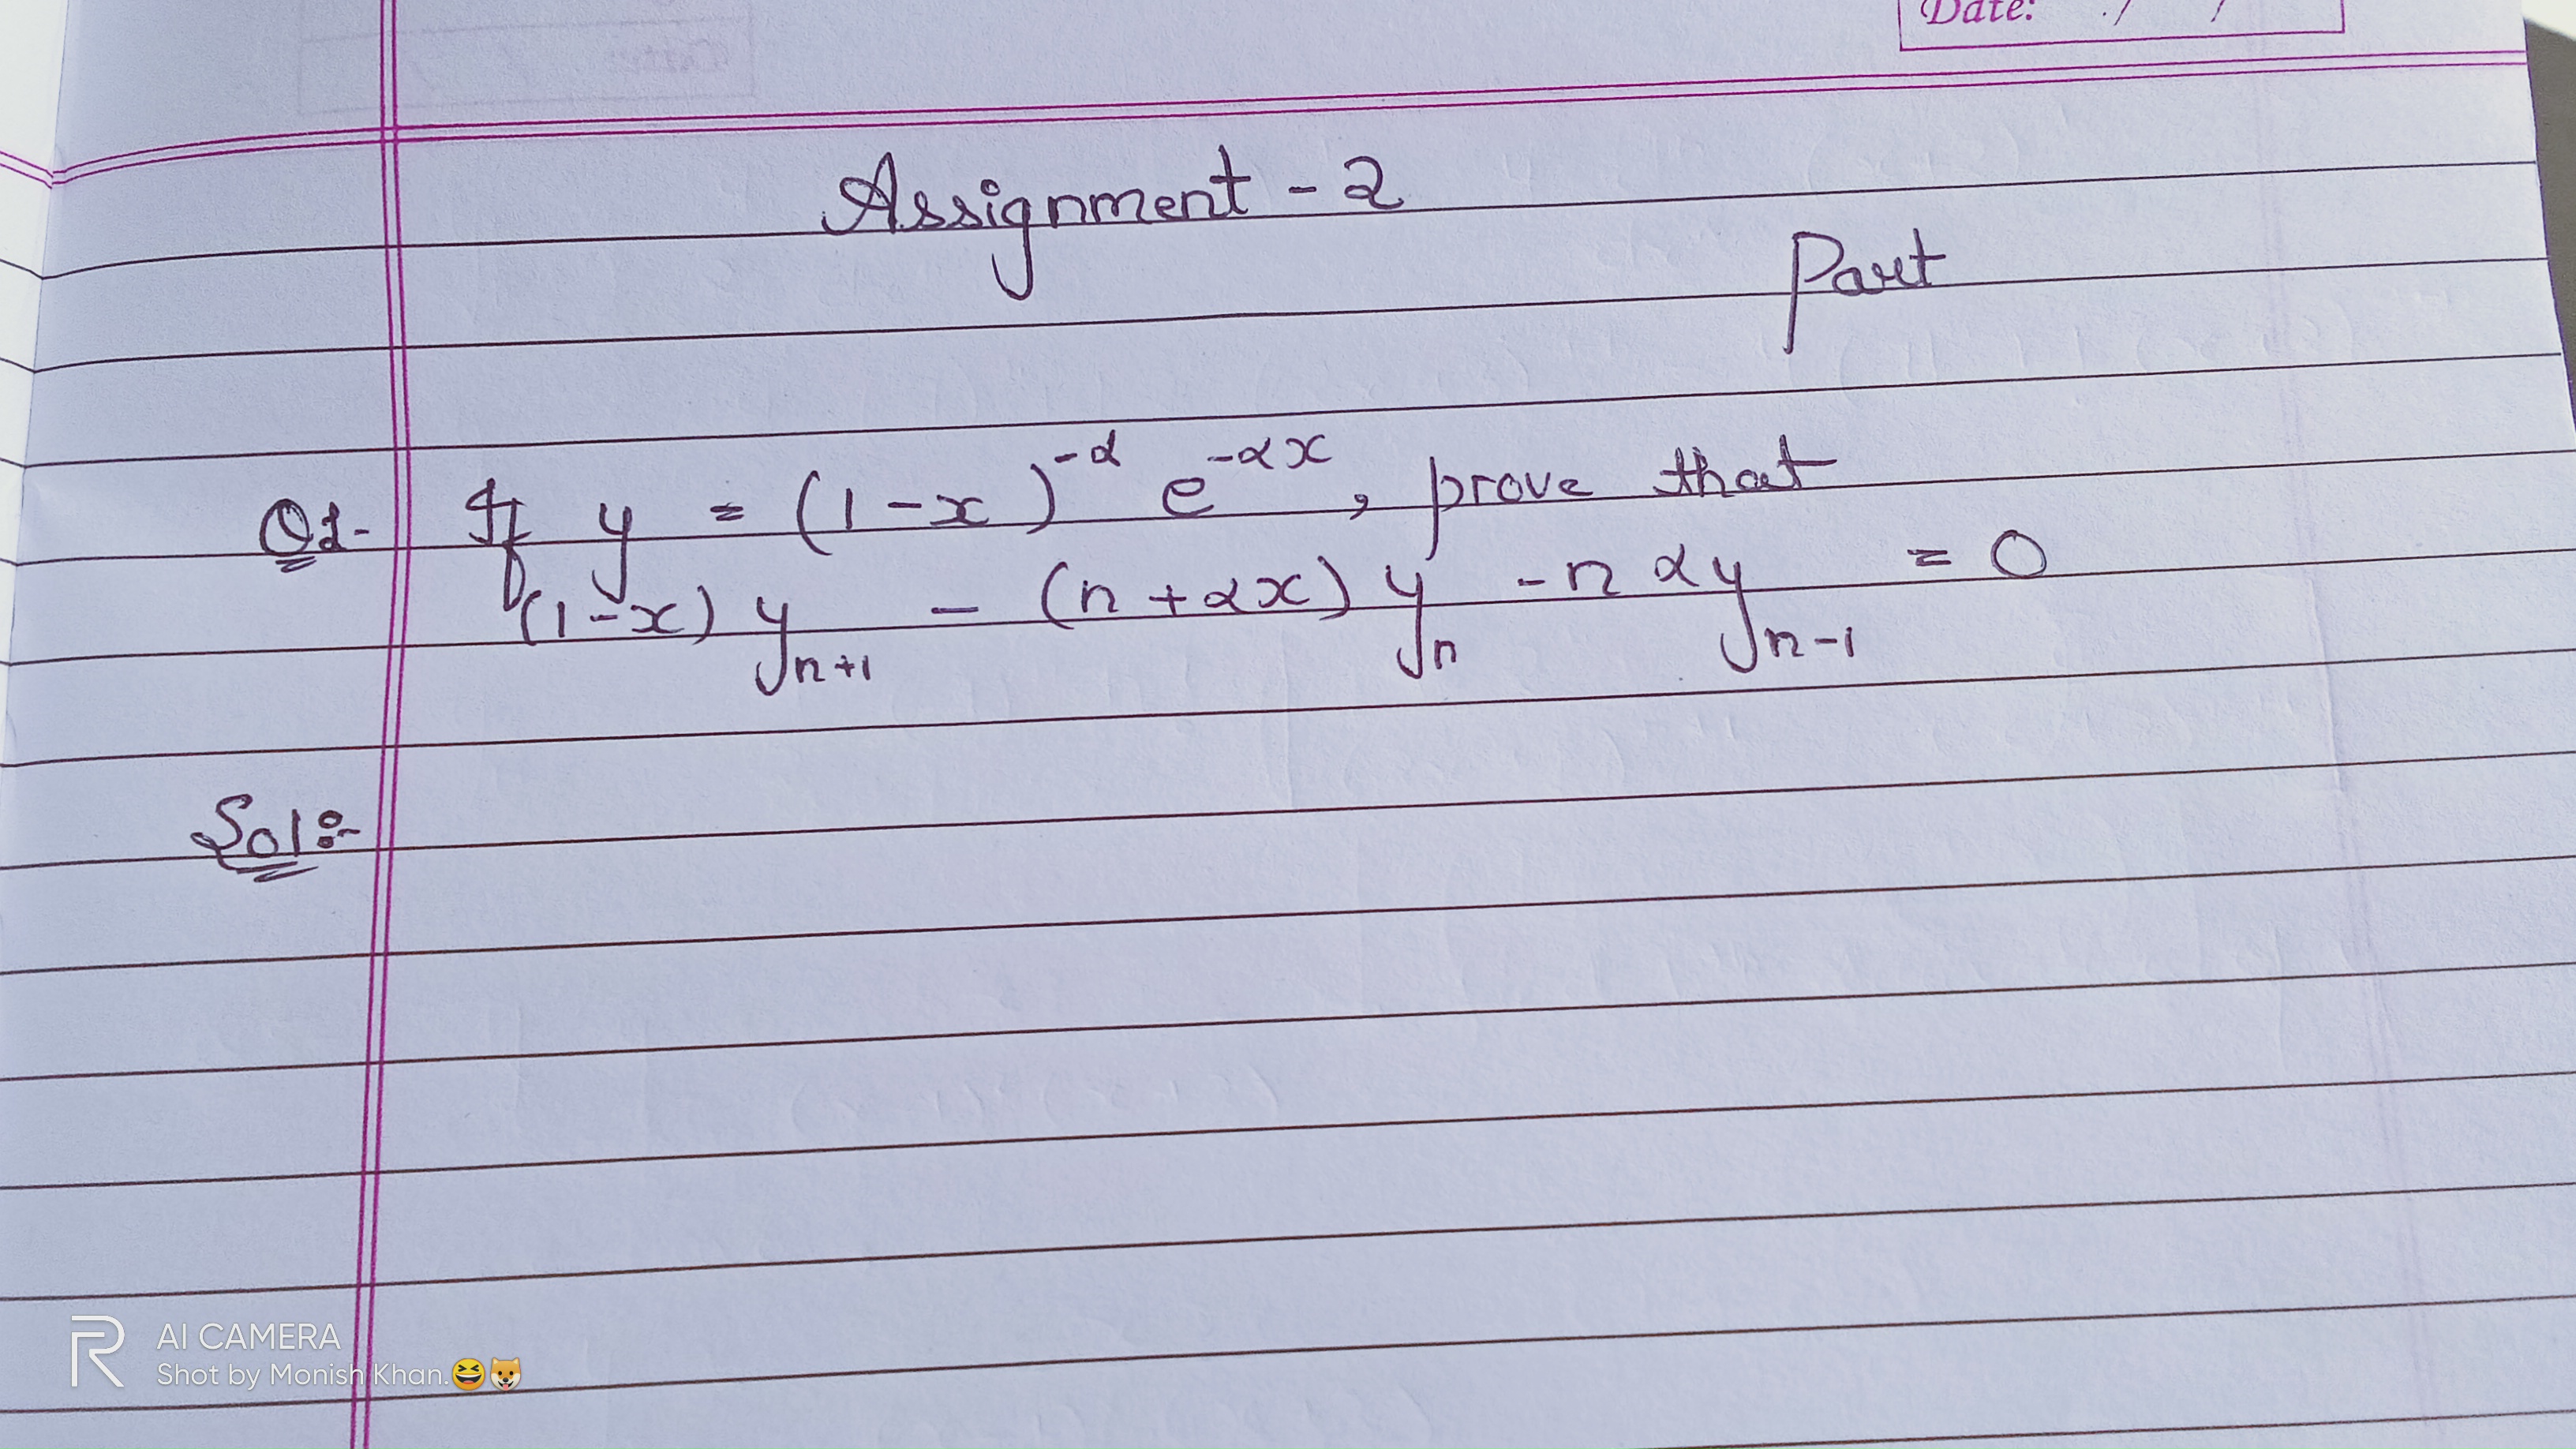 Date: / /
Assignment - 2
Part
Q1- If y = (1-x)^{-α} e^{-αx}, prove that
(1-x) y_{n+1} - (n+αx) y_n - nαy_{n-1} = 0
Sol:-
R AI CAMERA
Shot by Monish Khan.😆🐶